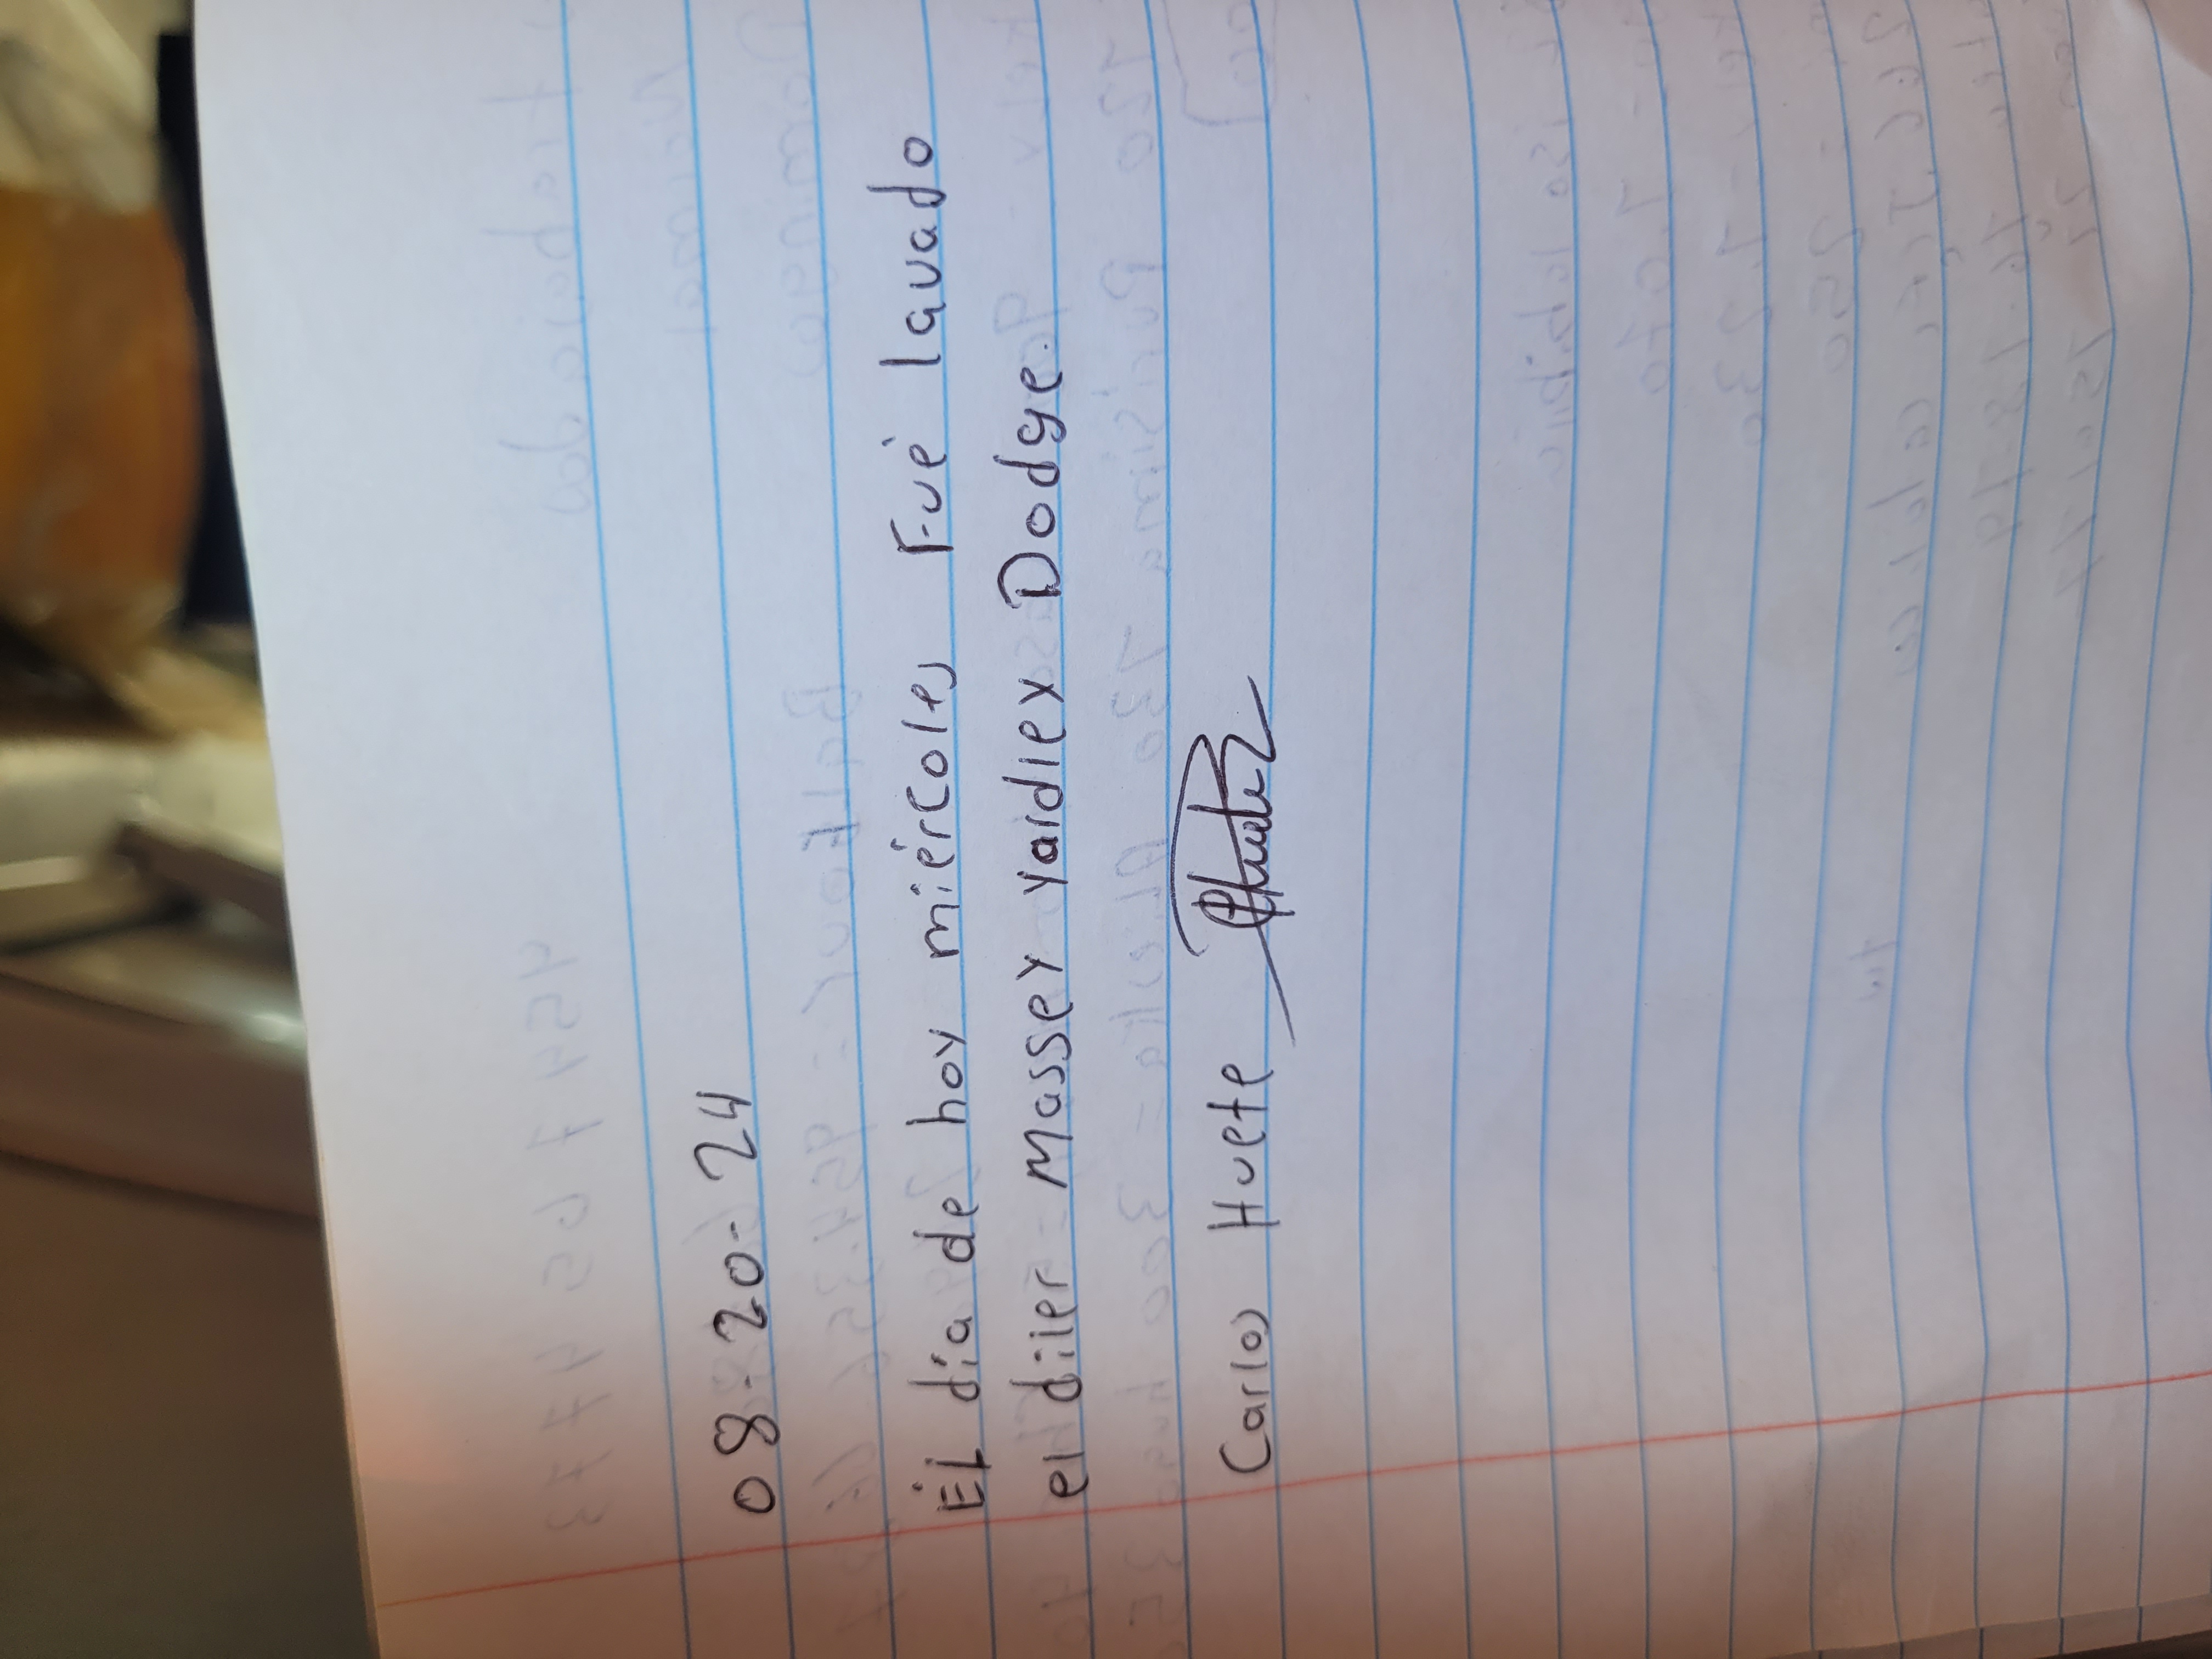 08-20-24
El día de hoy miércoles Fué lavado
el diler - Massey yardiex Dodge.
Carlos Huete